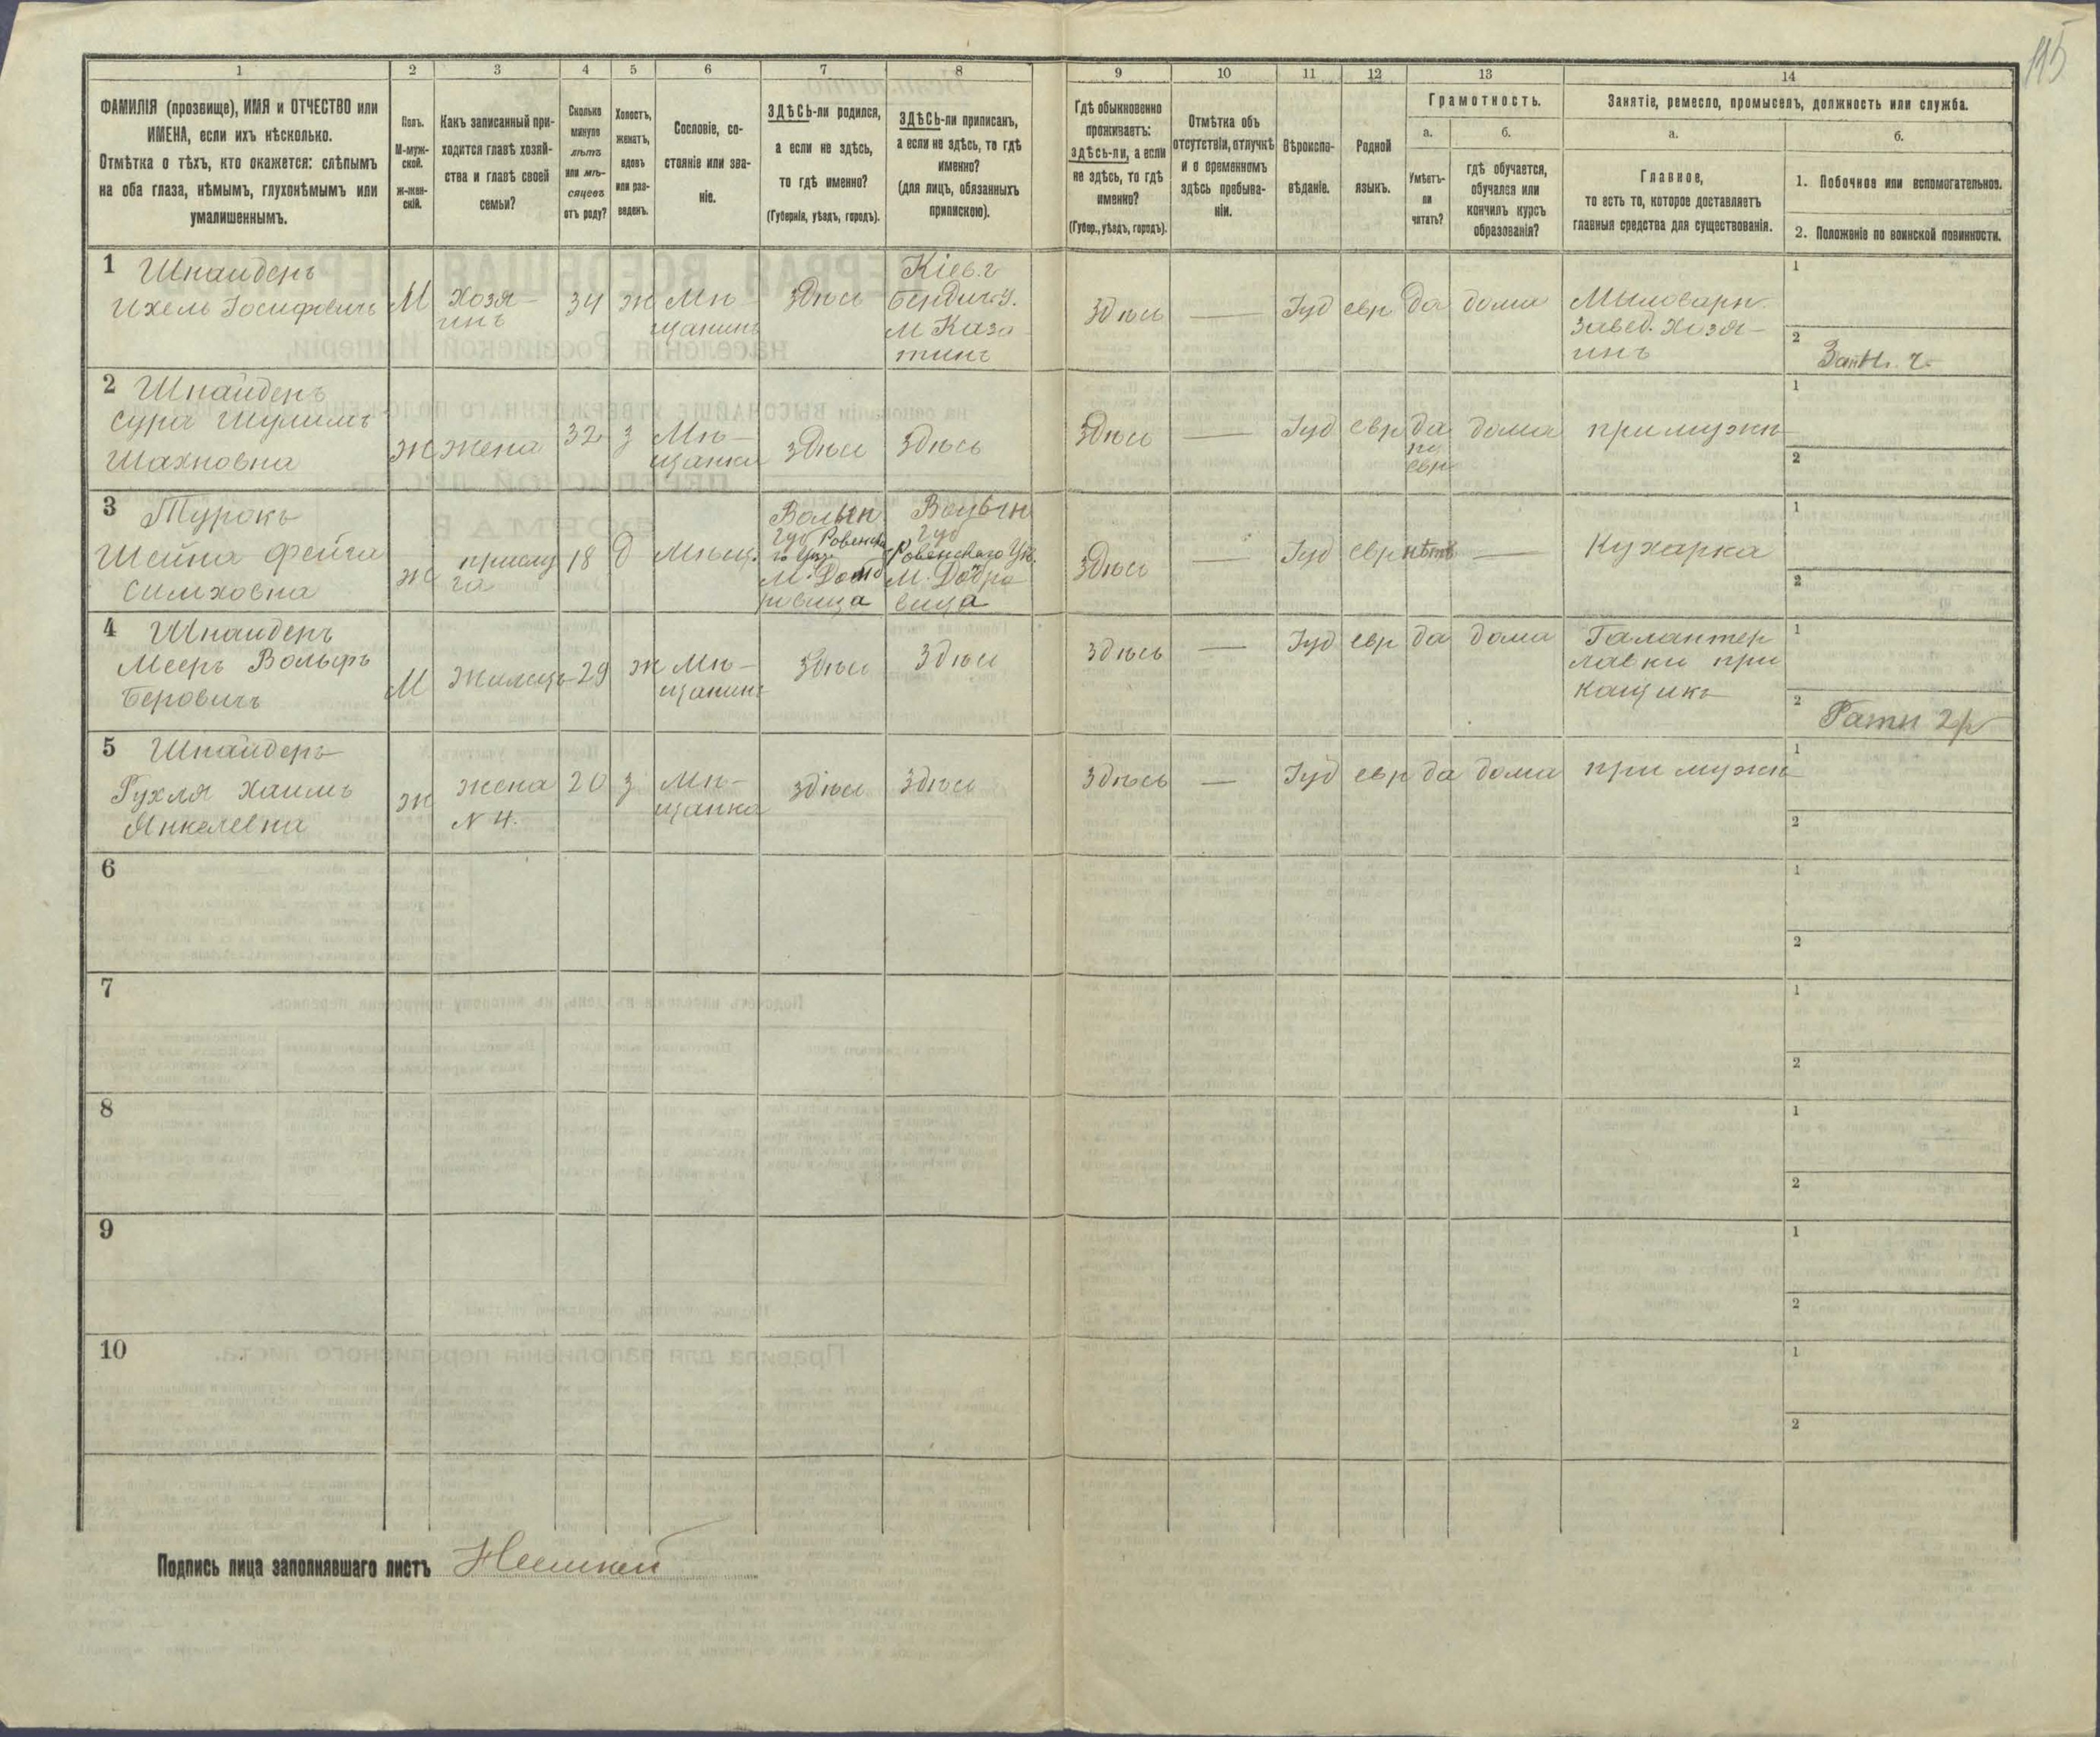 115
1
2
3
4
5
6
7
8
9
10
11
12
13
14
ФАМИЛІЯ (прозвище), ИМЯ и ОТЧЕСТВО или
ИМЕНА, если ихъ нѣсколько.
Отмѣтка о тѣхъ, кто окажется: слѣпымъ
на оба глаза, нѣмымъ, глухонѣмымъ или
умалишеннымъ.
Полъ.
М-муж-
ской.
ж-жен-
скій.
Какъ записанный при-
ходится главѣ хозяй-
ства и главѣ своей
семьи?
Сколько
минуло
лѣтъ
или мѣ-
сяцевъ
отъ роду?
Холостъ,
женатъ,
вдовъ
или раз-
веденъ.
Сословіе, со-
стояніе или зва-
ніе.
ЗДѢСЬ-ли родился,
а если не здѣсь,
то гдѣ именно?
(Губернія, уѣздъ, городъ).
ЗДѢСЬ-ли приписанъ,
а если не здѣсь, то гдѣ
именно?
(для лицъ, обязанныхъ
припискою).
Гдѣ обыкновенно
проживаетъ:
здѣсь-ли, а если
не здѣсь, то гдѣ
именно?
(Губер., уѣздъ, городъ).
Отмѣтка объ
отсутствіи, отлучкѣ
и о временномъ
здѣсь пребыва-
ніи.
Вѣроиспо-
вѣданіе.
Родной
языкъ.
Грамотность.
а.
Умѣетъ-
ли
читать?
б.
гдѣ обучается,
обучался или
кончилъ курсъ
образованія?
Занятіе, ремесло, промыселъ, должность или служба.
а.
Главное,
то есть то, которое доставляетъ
главныя средства для существованія.
б.
1. Побочное или вспомогательное.
2. Положеніе по воинской повинности.
1 Шнайдеръ
Ихель Іосифовичъ
М
Хозя-
инъ
34
ж
Мѣ-
щанинъ
здѣсь
Кіев. г
Бердич. у.
М Каза
тинъ
здѣсь
—
Іуд
евр
да
дома
Мыловарн.
Завед. Хозя-
инъ
1
2
2 Шнайдеръ
Сура Шулимъ
Шахновна
ж
жена
32
з
Мѣ-
щанка
здѣсь
здѣсь
здѣсь
—
Іуд
евр
да
евр
дома
при мужѣ
1
2
3 Турокъ
Шейна Фейга
Симховна
ж
прислу
га
18
д
Мѣщ.
Волын
губ Ровенска
го
Волын
губ
Ровенскаго Уѣ.
М. Добра
вица
здѣсь
—
Іуд
евр
нѣтъ
—
Кухарка
1
2
4 Шнайдеръ
Мееръ Вольфъ
Беровичъ
М
Жилецъ
29
ж
Мѣ-
щанинъ
здѣсь
здѣсь
здѣсь
—
Іуд
евр
да
дома
Галантер
лавки при
кащикъ
1
2 Ратн 2 р
5 Шнайдеръ
Рухля Хаимъ
Янкелевна
ж
жена
N 4.
20
з
Мѣ-
щанка
здѣсь
здѣсь
здѣсь
—
Іуд
евр
да
дома
при мужѣ
1
2
6
1
2
7
1
2
8
1
2
9
1
2
10
1
2
Подпись лица заполнявшаго листъ